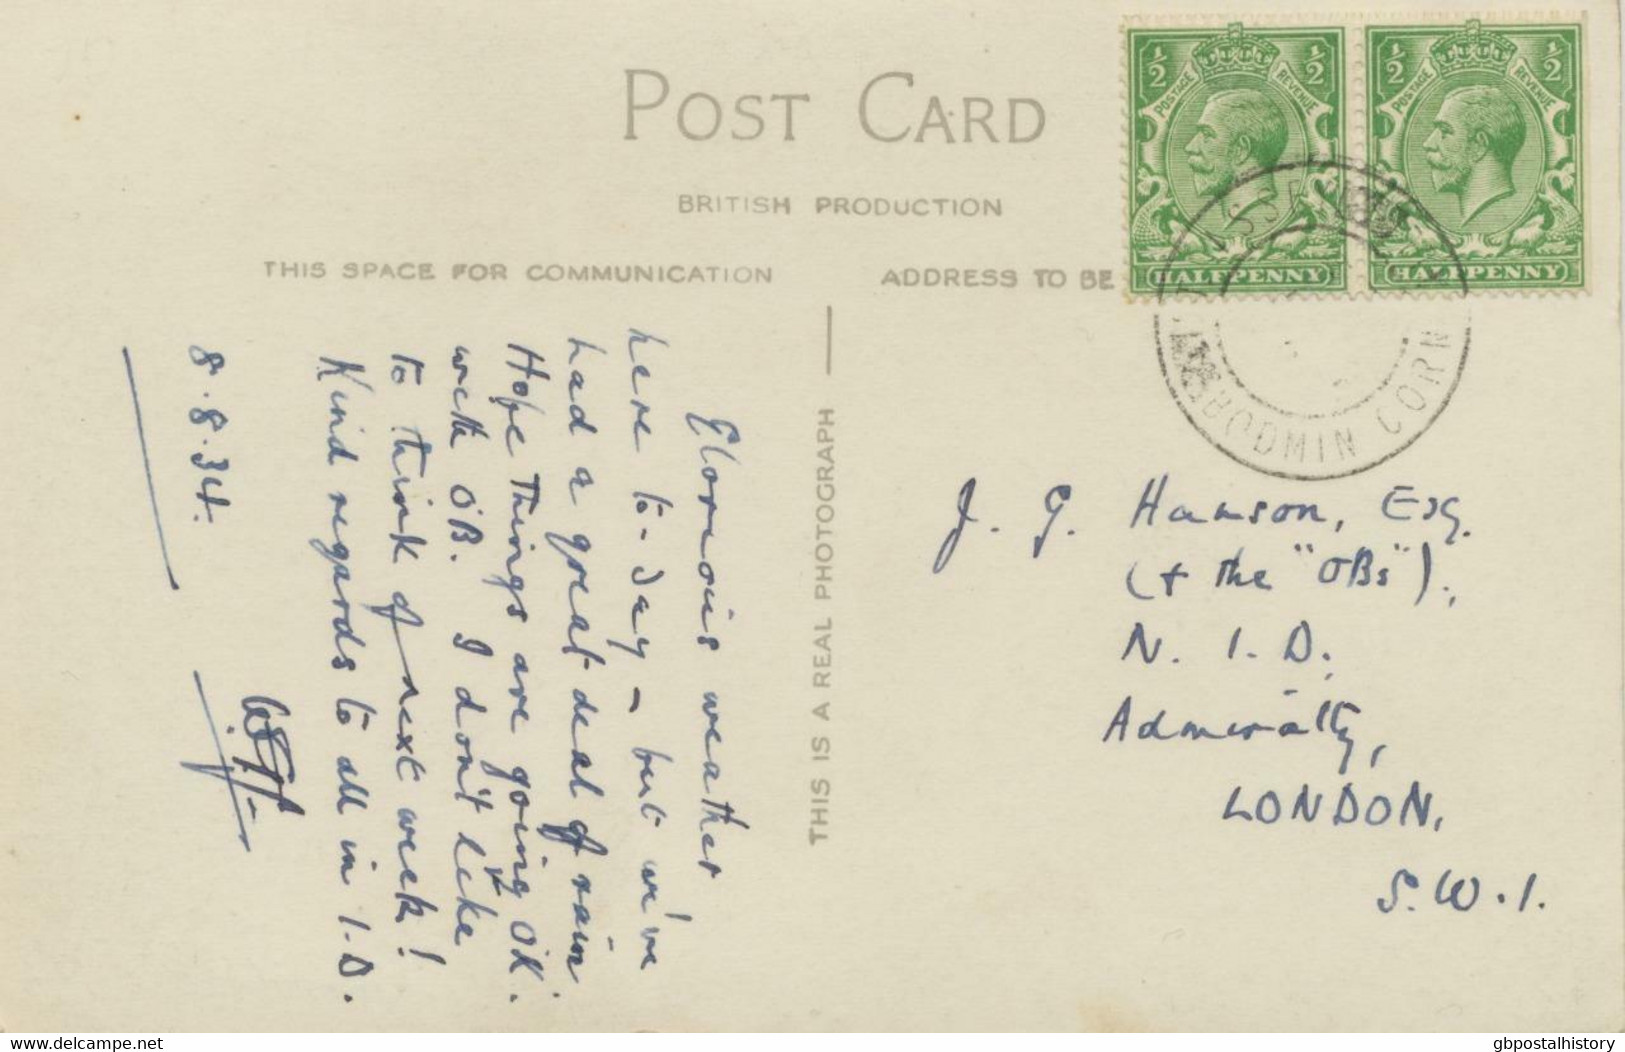 POST CARD
BRITISH PRODUCTION
THIS SPACE FOR COMMUNICATION
ADDRESS TO BE
THIS IS A REAL PHOTOGRAPH
½ ½
POSTAGE REVENUE
HALFPENNY
½ ½
POSTAGE REVENUE
HALFPENNY
BODMIN CORN
Glorious weather
here to-day – but we've
had a great deal of rain.
Hope things are going O.K.
with OB. I don't like
to think of next week!
Kind regards to all in I.D.
8.8.34.
J. G. Hanson, Esq.
(+ the "OBs").,
N. I. D.
Admiralty,
LONDON,
S.W.1.
www.delcampe.net
gbpostalhistory